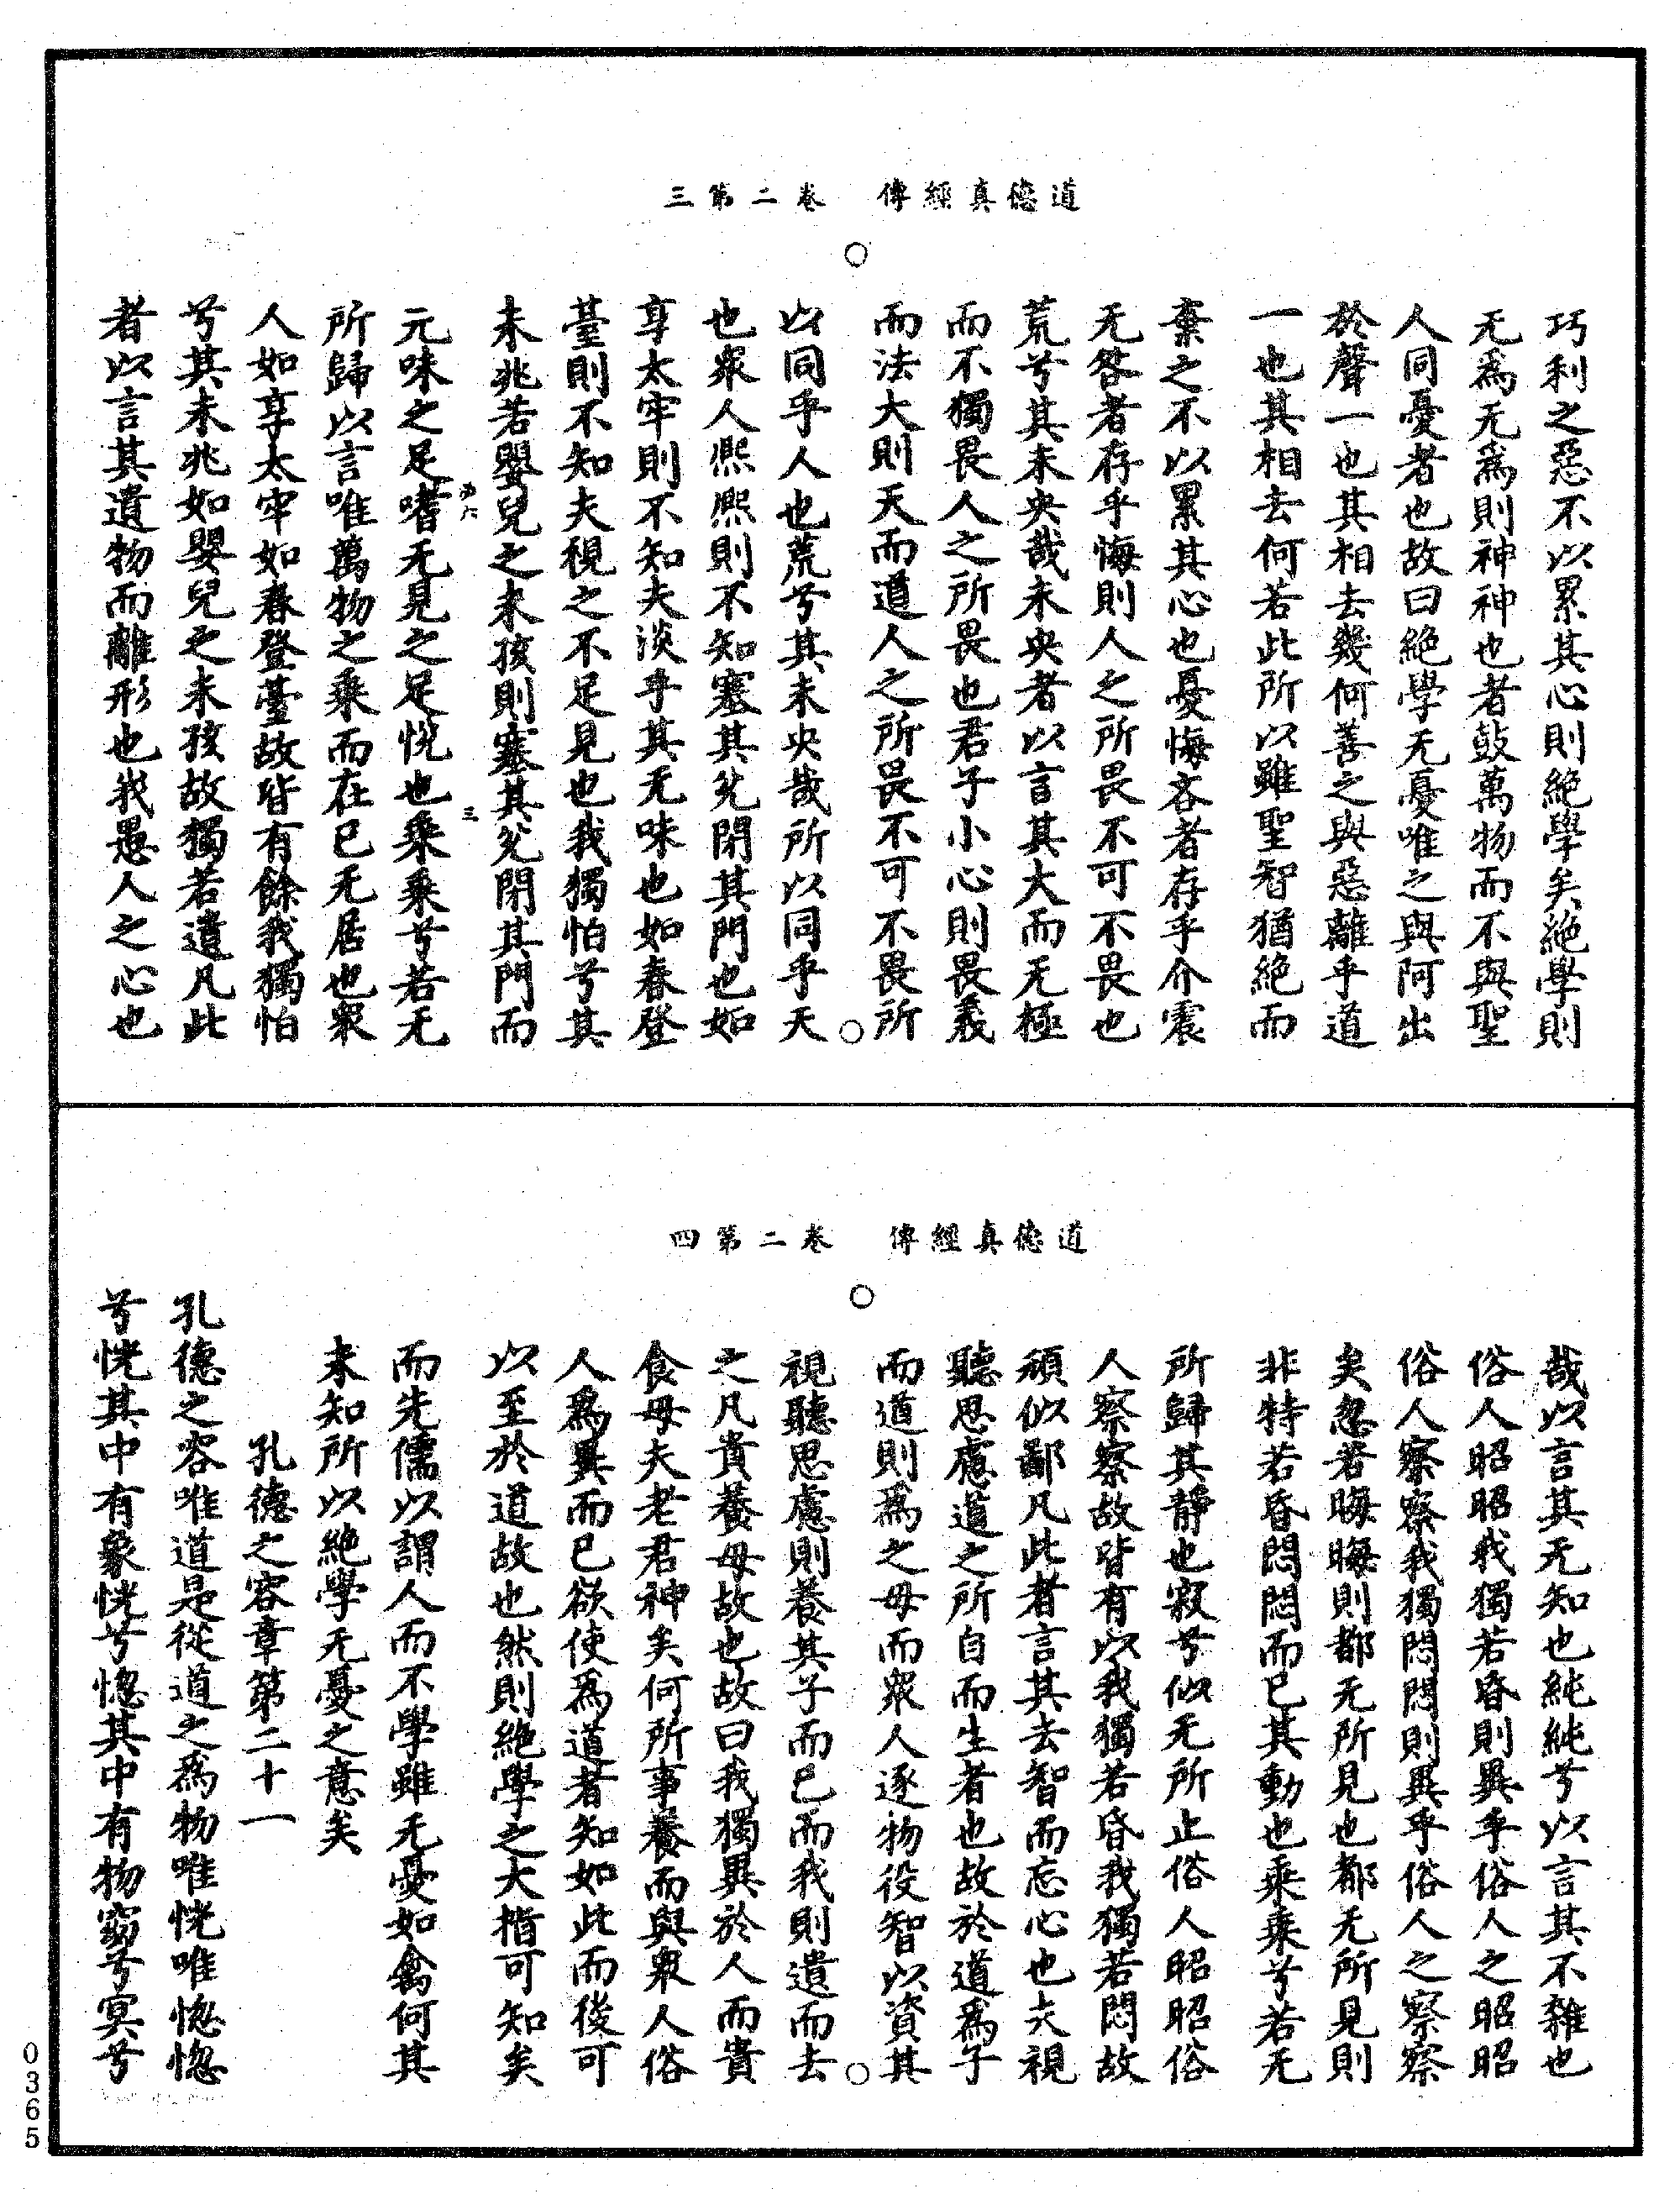 道德真經傳　卷二第三
巧利之惡不以累其心則絶學矣絶學則
无爲无爲則神神也者鼓萬物而不與聖
人同憂者也故曰絶學无憂唯之與阿出
於聲一也其相去幾何善之與惡離乎道
一也其相去何若此所以雖聖智猶絶而
棄之不以累其心也憂悔吝者存乎介震
无咎者存乎悔則人之所畏不可不畏也
荒兮其未央哉未央者以言其大而无極
而不獨畏人之所畏也君子小心則畏義
而法大則天而道人之所畏不可不畏所
以同乎人也荒兮其未央哉所以同乎天
也衆人熙熙則不知塞其兊閉其門也如
享太牢則不知夫淡乎其无味也如春登
臺則不知夫視之不足見也我獨怕兮其
未兆若嬰兒之未孩則塞其兊閉其門而
元味之足嗜无見之足悅也乘乘兮若无
所歸以言唯萬物之乘而在己无居也衆
人如享太牢如春登臺故皆有餘我獨怕
兮其未兆如嬰兒之未孩故獨若遺凡此
者以言其遺物而離形也我愚人之心也
道德真經傳　卷二第四
哉以言其无知也純純兮以言其不雜也
俗人昭昭我獨若昏則異乎俗人之昭昭
俗人察察我獨悶悶則異乎俗人之察察
矣忽若晦晦則都无所見也都无所見則
非特若昏悶悶而已其動也乘乘兮若无
所歸其靜也寂兮似无所止俗人昭昭俗
人察察故皆有以我獨若昏我獨若悶故
頑似鄙凡此者言其去智而忘心也夫視
聽思慮道之所自而生者也故於道爲子
而道則爲之母而衆人逐物役智以資其
視聽思慮則養其子而已而我則遺而去
之凡貴養母故也故曰我獨異於人而貴
食母夫老君神矣何所事養而與衆人俗
人爲異而已欲使爲道者知如此而後可
以至於道故也然則絶學之大指可知矣
而先儒以謂人而不學雖无憂如禽何其
未知所以絶學无憂之意矣
孔德之容章第二十一
孔德之容唯道是從道之爲物唯恍唯惚惚
兮恍其中有象恍兮惚其中有物窈兮冥兮
0365